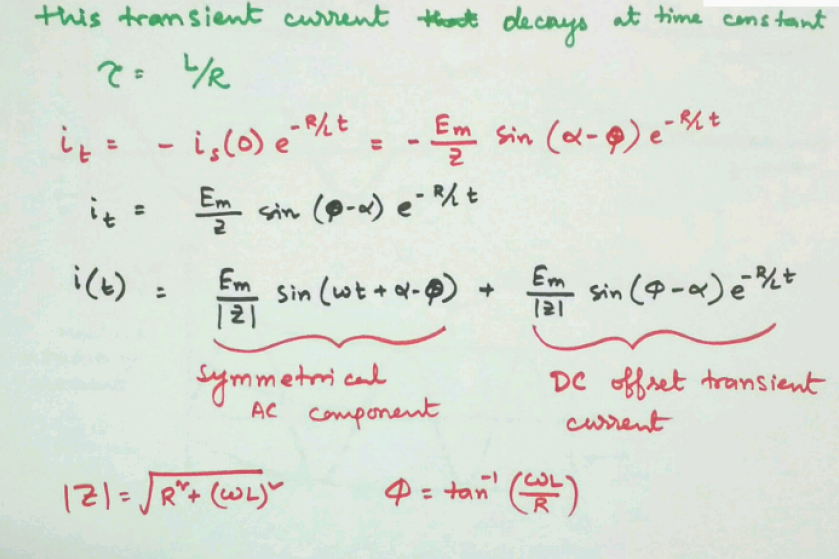 this transient current that decays at time constant
τ = L/R
i_t = - i_s(0) e^{-R/L t} = - E_m/Z sin (α-φ) e^{-R/L t}
i_t = E_m/Z sin (φ-α) e^{-R/L t}
i(t) = E_m/|Z| sin (ωt + α-φ) + E_m/|Z| sin (φ-α) e^{-R/L t}
symmetrical DC offset transient
AC component current
|Z| = √(R² + (ωL)²) φ = tan⁻¹ (ωL/R)